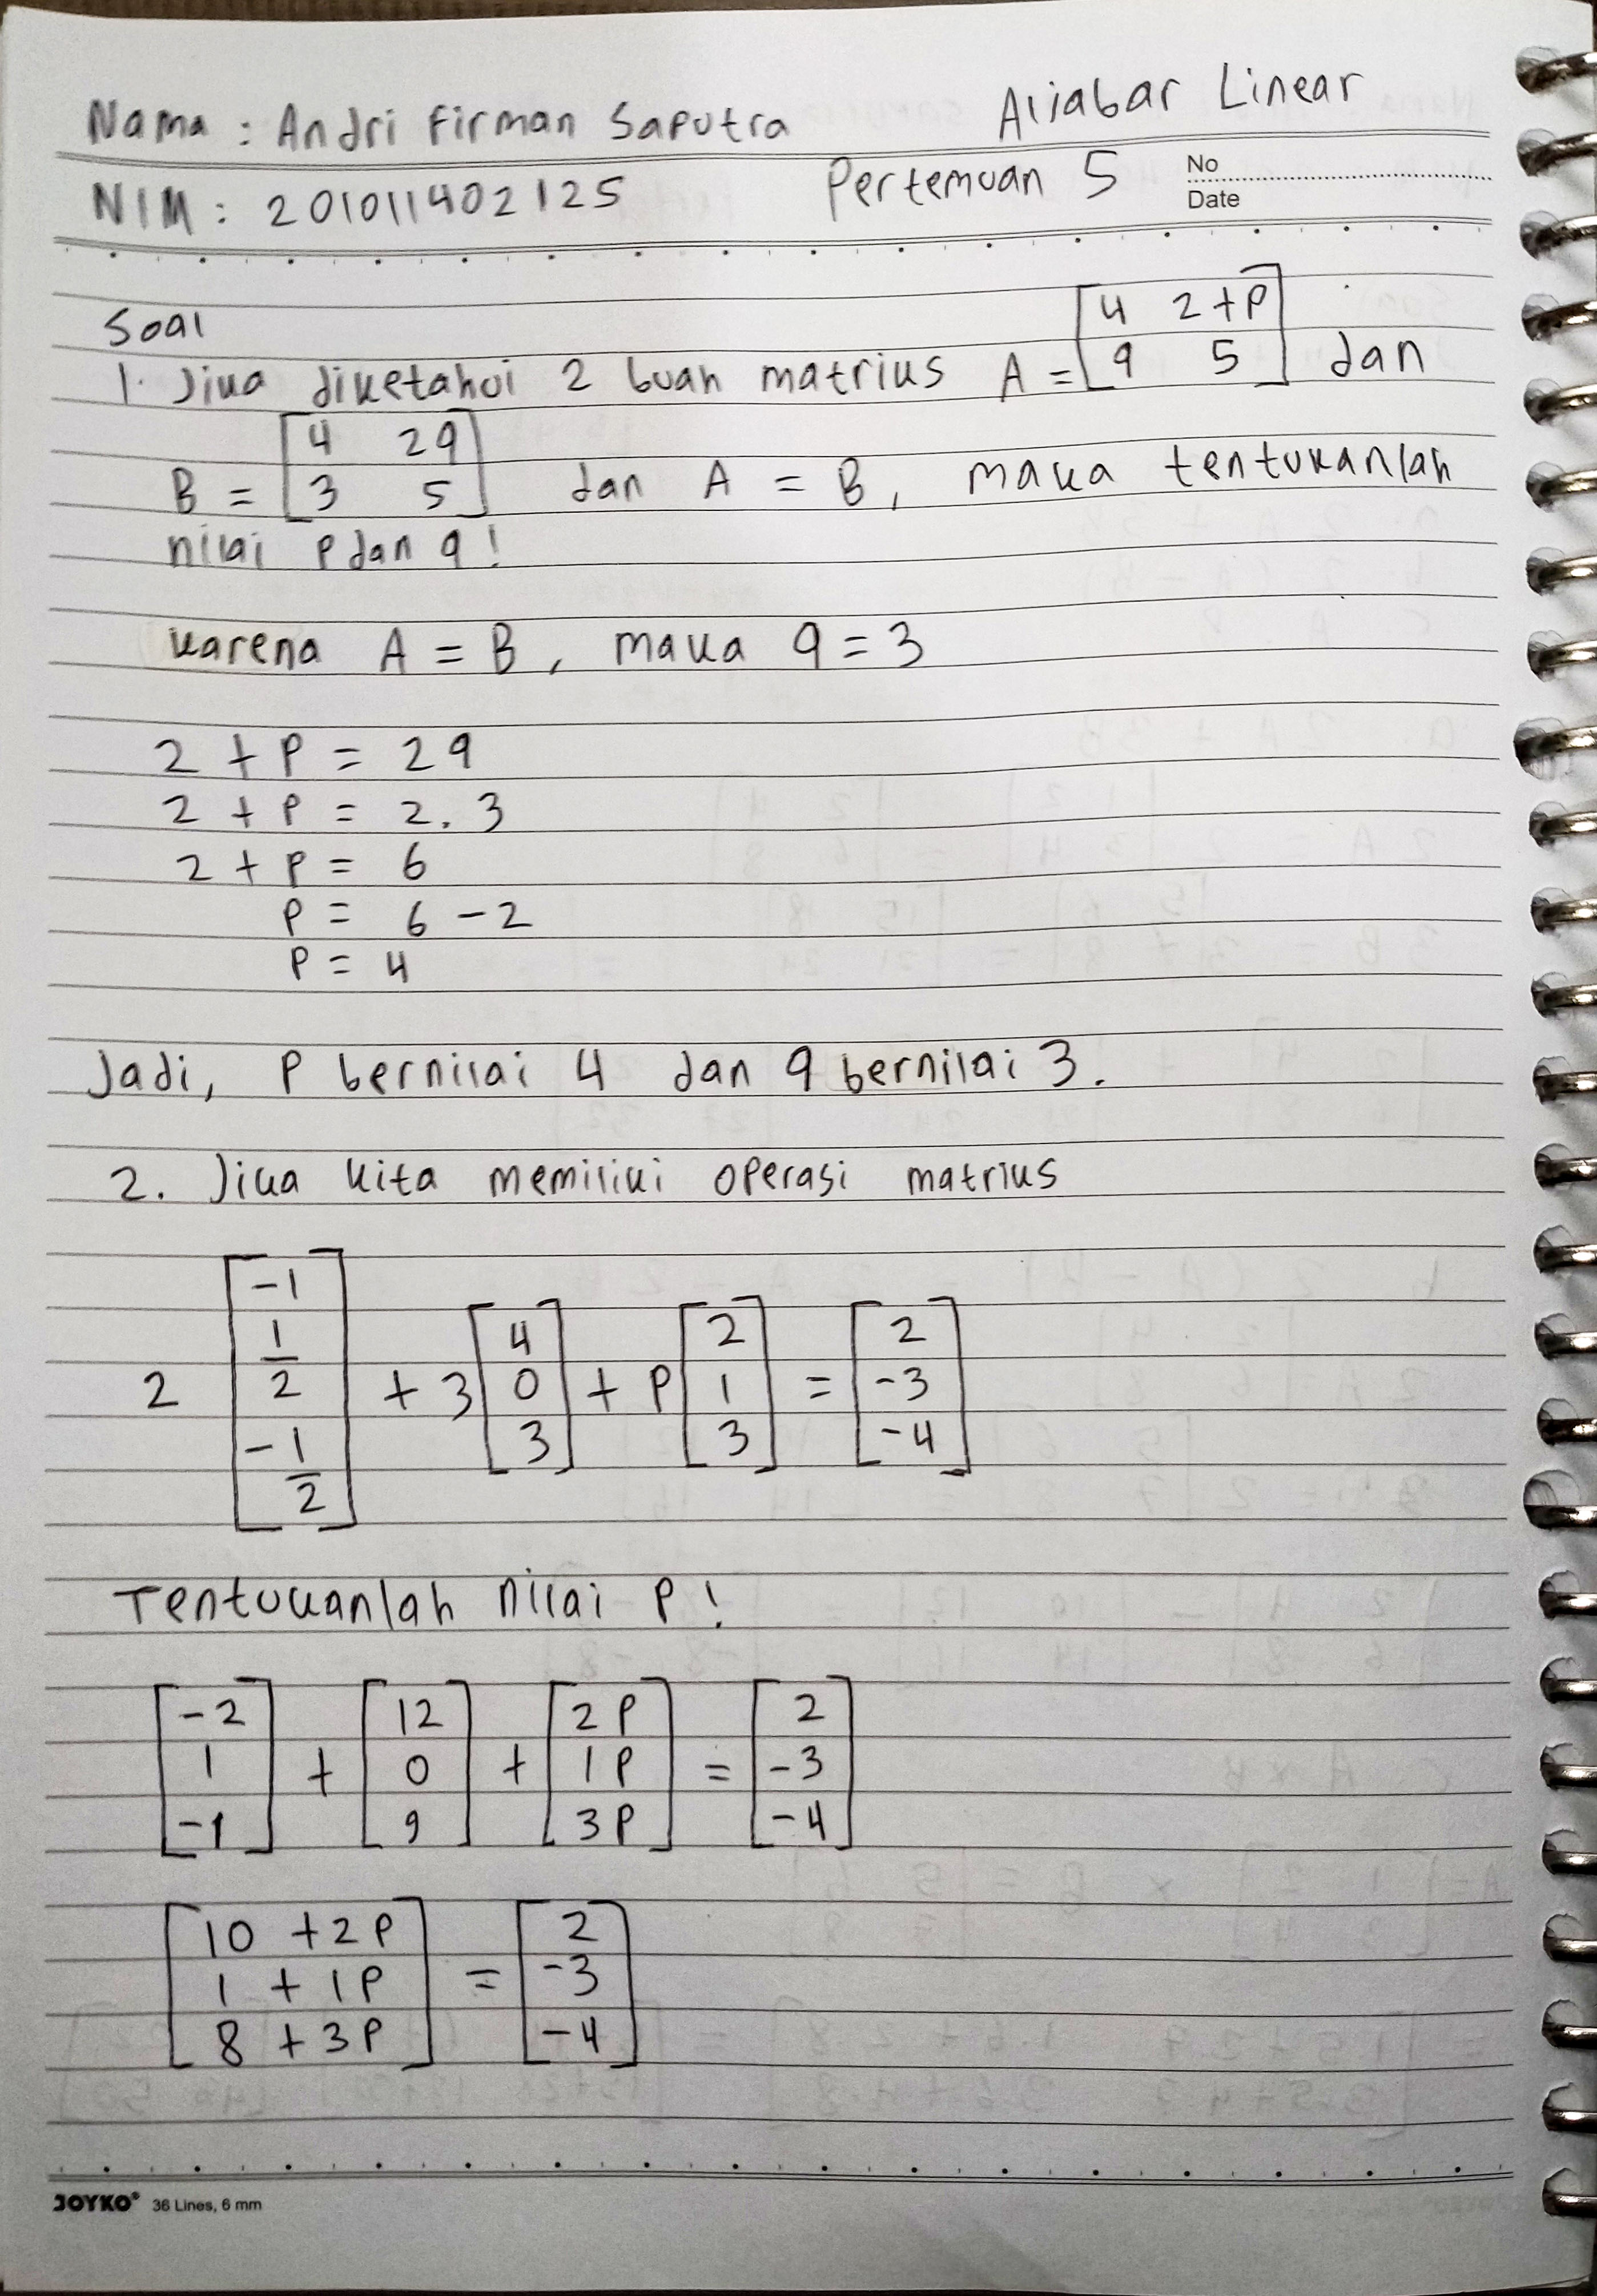 Nama : Andri Firman Saputra Aljabar Linear
NIM : 201011402125 Pertemuan 5
No
Date
Soal
1. Jika diketahui 2 buah matriks A = [4 2+p; q 5] dan
B = [4 2q; 3 5] dan A = B, maka tentukanlah
nilai p dan q!
Karena A = B, maka q = 3
2 + p = 2q
2 + p = 2.3
2 + p = 6
p = 6 - 2
p = 4
Jadi, p bernilai 4 dan q bernilai 3.
2. Jika kita memiliki operasi matriks
2 [-1; 1/2; -1/2] + 3 [4; 0; 3] + p [2; 1; 3] = [2; -3; -4]
Tentukanlah nilai p!
[-2; 1; -1] + [12; 0; 9] + [2p; 1p; 3p] = [2; -3; -4]
[10 + 2p; 1 + 1p; 8 + 3p] = [2; -3; -4]
JOYKO® 36 Lines, 6 mm